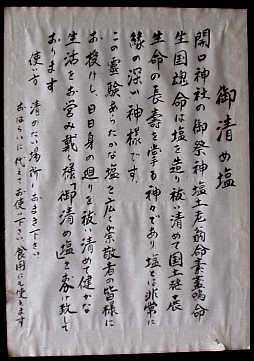 御清め塩
開口神社の御祭神塩土老翁命素盞嗚命
生国魂命は塩を造り祓い清めて国土経営
生命の長寿を掌る神々であり塩とは非常に
縁の深い神様です。
この霊験あらたかな塩を広く崇敬者の皆様に
お授けし、日日身の廻りを祓い清めて健かな
生活をお営み戴く様「御清め塩」をお分け致して
おります
使い方 清めたい場所におまき下さい
おはらいに代えてお使い下さい食用にも使えます